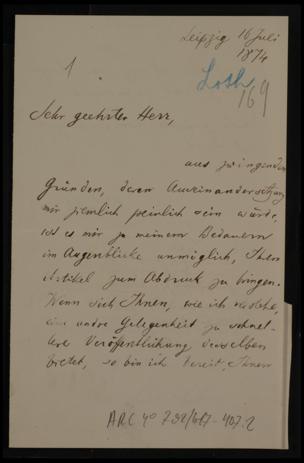 Leipzig 16 Juli
1874
1
Loth
169
Sehr geehrter Herr,
aus zwingenden
Gründen, deren Auseinandersetzung
mir ziemlich peinlich sein würde,
ist es mir zu meinem Bedauern
im Augenblicke unmöglich, Ihren
Artikel zum Abdruck zu bringen.
Wenn sich Ihnen, wie ich
eine andre Gelegenheit zu schnel-
lerer Veröffentlichung desselben
bietet, so bin ich bereit, Ihnen
ARC 4º 792/